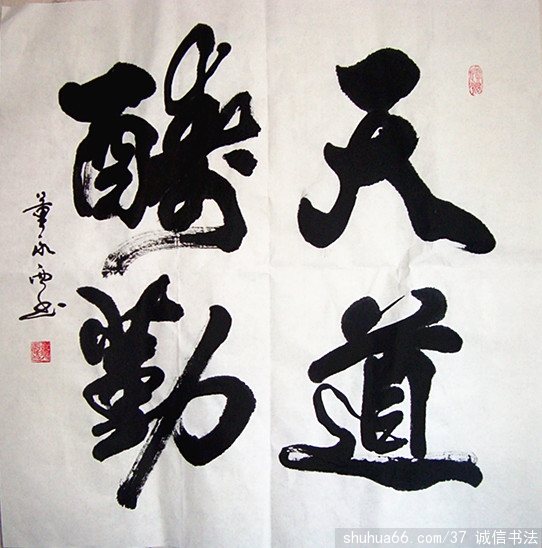 天道
酬勤
董永西书
shuhua66.com/37 诚信书法